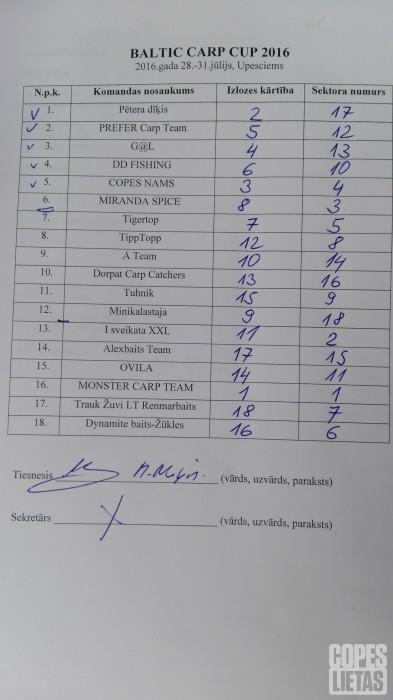 BALTIC CARP CUP 2016
2016.gada 28.-31.jūlijs, Upesciems
N.p.k. Komandas nosaukums Izlozes kārtība Sektora numurs
1. Pētera dīķis 2 17
2. PREFER Carp Team 5 12
3. G@L 4 13
4. DD FISHING 6 10
5. COPES NAMS 3 4
6. MIRANDA SPICE 8 3
7. Tigertop 7 5
8. TippTopp 12 8
9. A Team 10 14
10. Dorpat Carp Catchers 13 16
11. Tuhnik 15 9
12. Minikalastaja 9 18
13. I sveikata XXL 11 2
14. Alexbaits Team 17 15
15. OVILA 14 11
16. MONSTER CARP TEAM 1 1
17. Trauk Žuvi LT Renmarbaits 18 7
18. Dynamite baits-Žūkles 16 6
Tiesnesis (vārds, uzvārds, paraksts)
Sekretārs (vārds, uzvārds, paraksts)
COPES
LIETAS